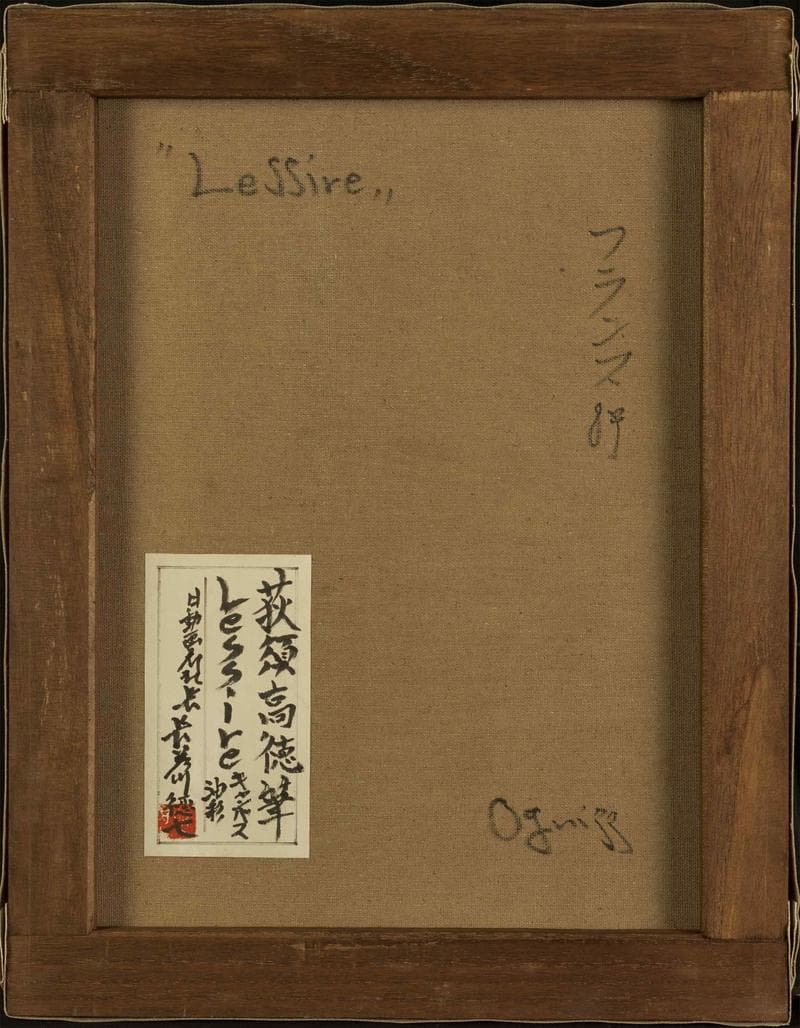 "Lessire„
フランス
荻須高徳筆
Lessire
キャンバス
油彩
日動画廊社長
長谷川 徳七
Oguiss